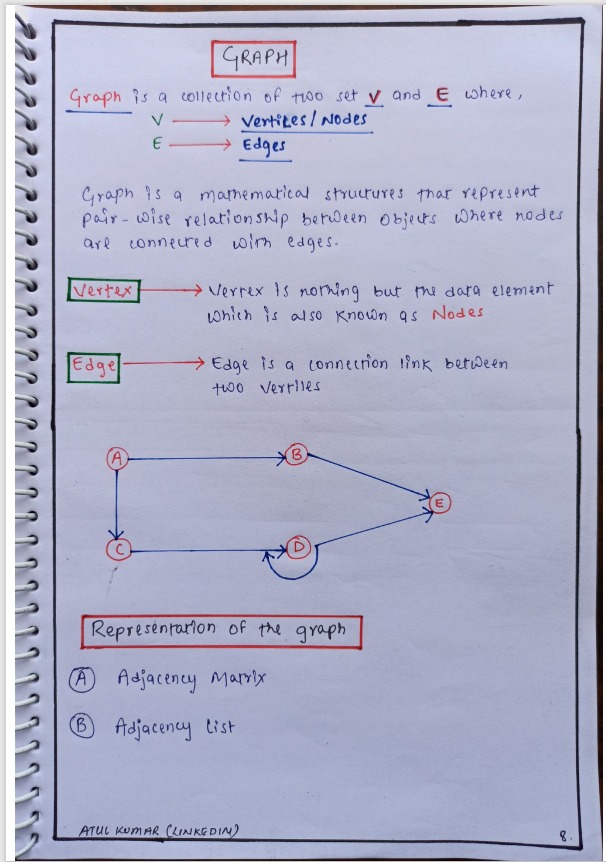 GRAPH
Graph is a collection of two set V and E where,
V → Vertices/Nodes
E → Edges
Graph is a mathematical structures that represent
pair-wise relationship between objects where nodes
are connected with edges.
Vertex → Vertex is nothing but the data element
which is also known as Nodes
Edge → Edge is a connection link between
two vertices
A B
E
C D
Representation of the graph
A Adjacency Matrix
B Adjacency List
ATUL KUMAR (LINKEDIN) 8.